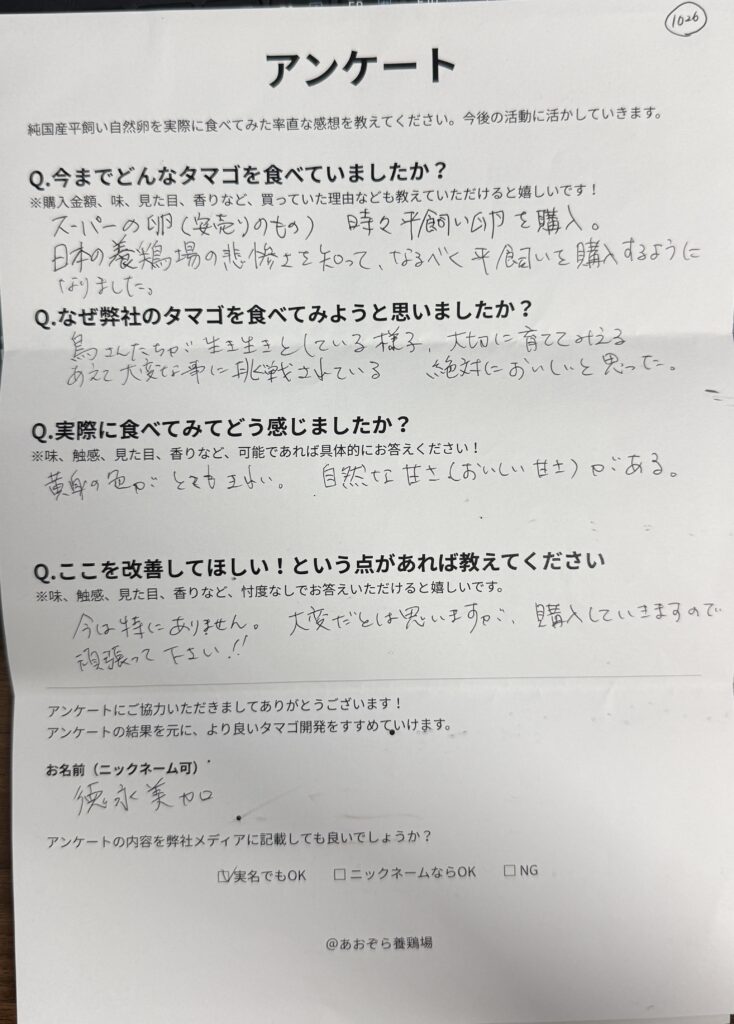 1026
アンケート
純国産平飼い自然卵を実際に食べてみた率直な感想を教えてください。今後の活動に活かしていきます。
Q.今までどんなタマゴを食べていましたか？
※購入金額、味、見た目、香りなど、買っていた理由なども教えていただけると嬉しいです！
スーパーの卵(安売りのもの) 時々平飼い卵を購入。
日本の養鶏場の悲惨さを知って、なるべく平飼いを購入するように
なりました。
Q.なぜ弊社のタマゴを食べてみようと思いましたか？
鳥さんたちが生き生きとしている様子、大切に育ててみえる
あえて大変な事に挑戦されている 絶対においしいと思った。
Q.実際に食べてみてどう感じましたか？
※味、触感、見た目、香りなど、可能であれば具体的にお答えください！
黄身の色がとてもきれい。 自然な甘さ(おいしい甘さ)がある。
Q.ここを改善してほしい！という点があれば教えてください
※味、触感、見た目、香りなど、忖度なしでお答えいただけると嬉しいです。
今は特にありません。 大変だとは思いますが、購入していきますので
頑張って下さい!!
アンケートにご協力いただきましてありがとうございます！
アンケートの結果を元に、より良いタマゴ開発をすすめていけます。
お名前（ニックネーム可）
徳永美加
アンケートの内容を弊社メディアに記載しても良いでしょうか？
☑実名でもOK □ニックネームならOK □NG
@あおぞら養鶏場